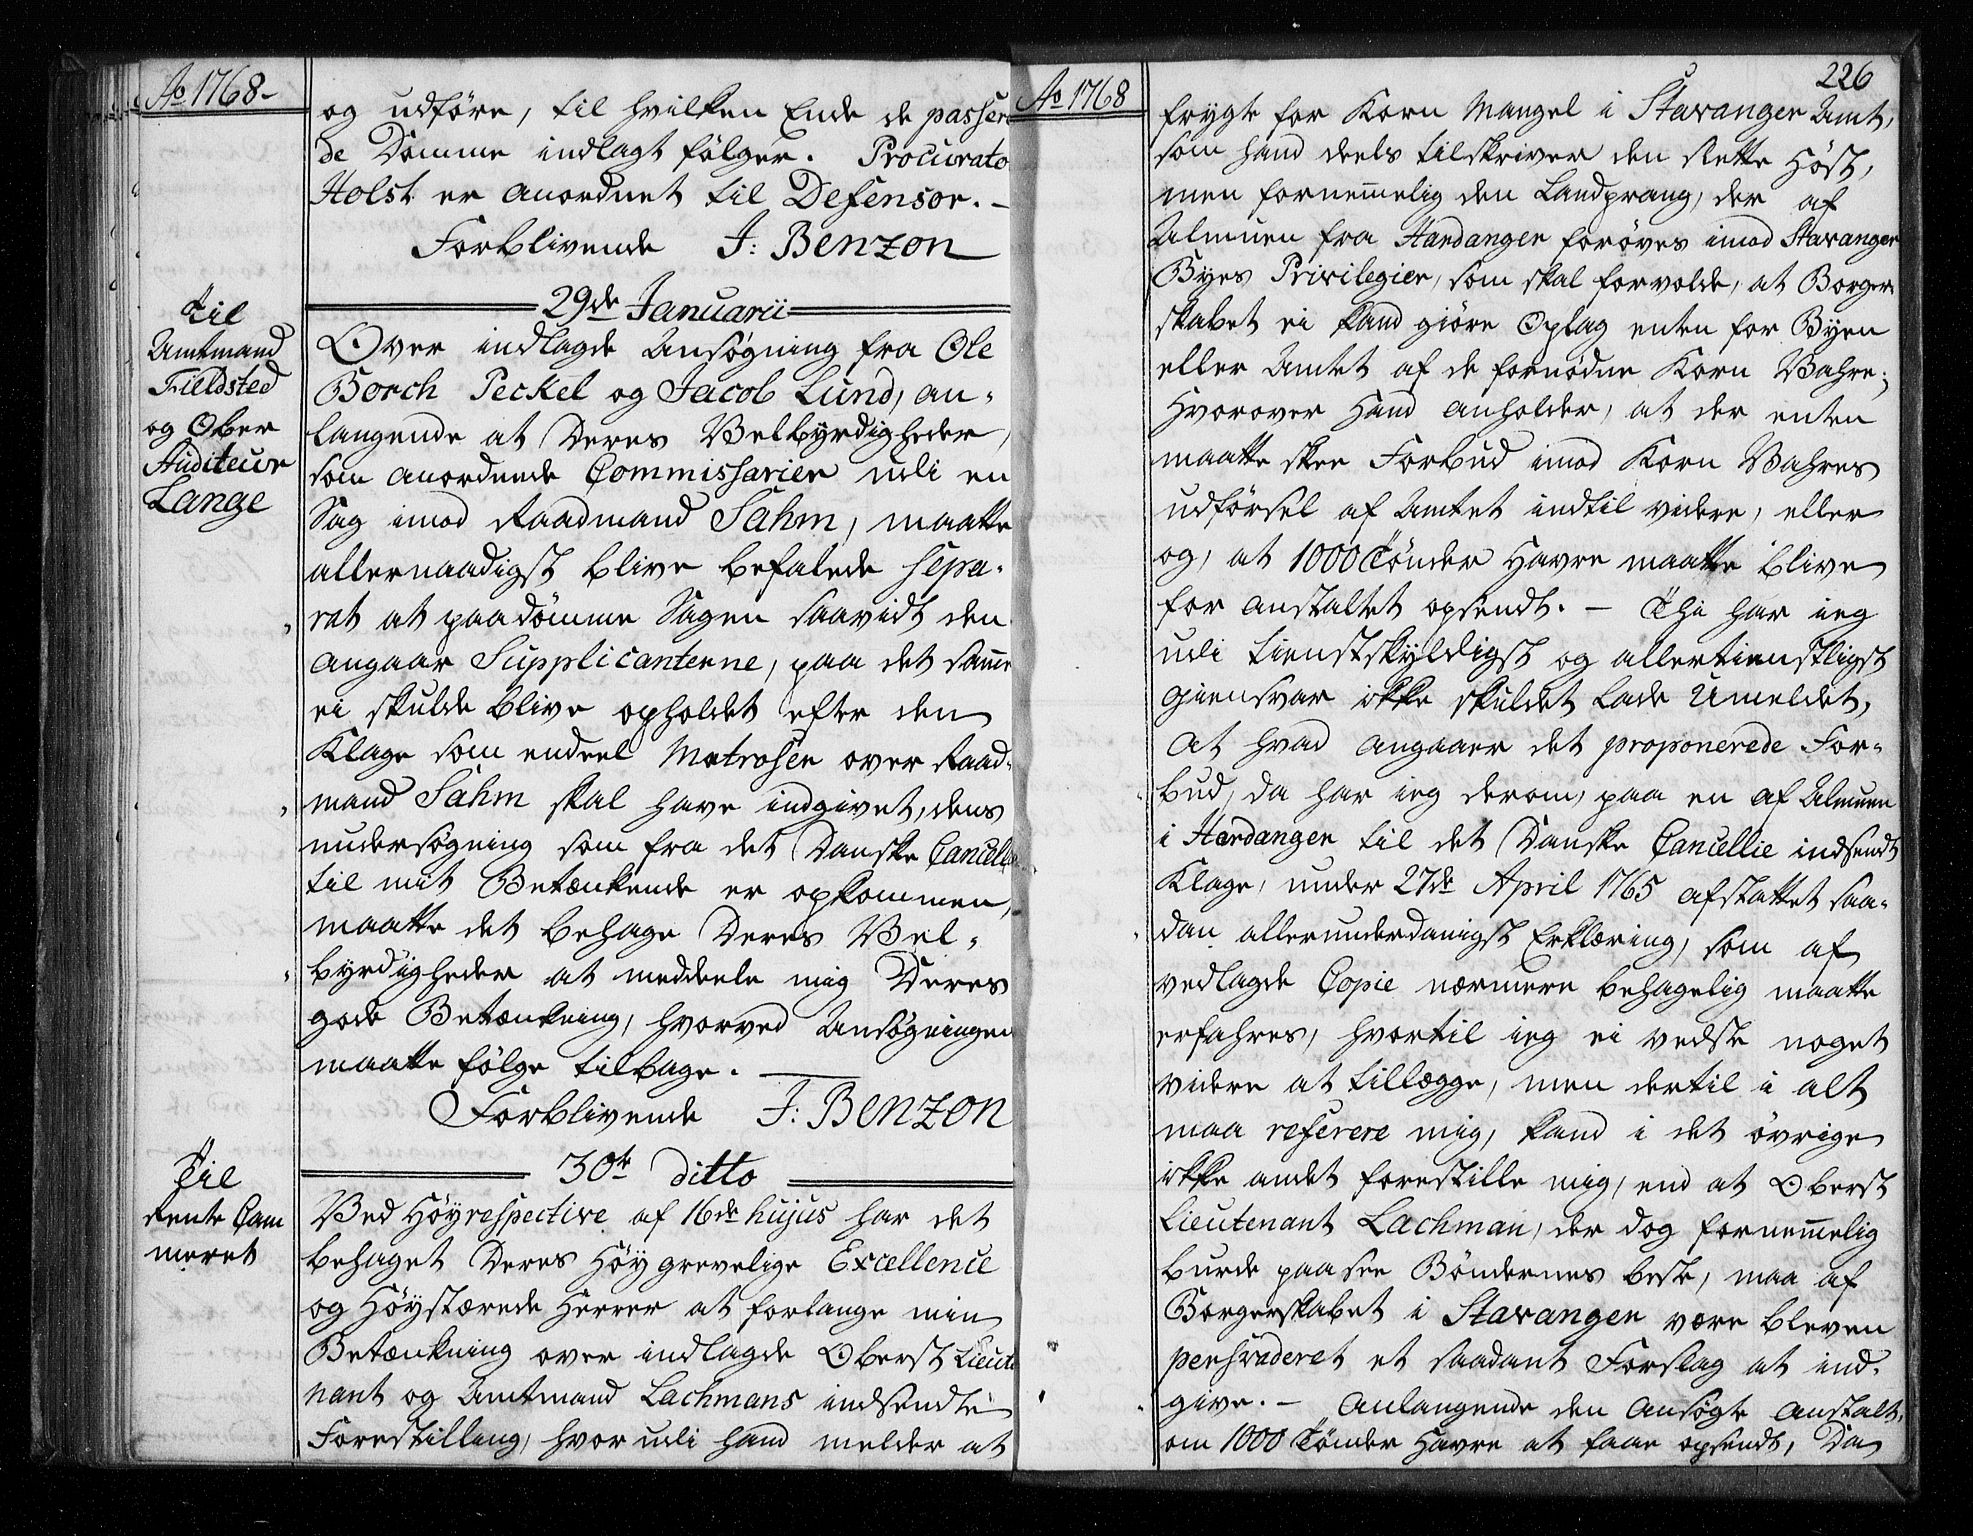 Ao 1768-
og udføre, til hvilken Ende de passeren
de Domme indlagt følger. Procurato
Holst er anordnet til Defensor. -
Forblivende J: Benzon
29de Januarii
til
Amtmand
Fieldsted
og Ober
Auditeur
Lange
Over indlagde Ansøgning fra Ole
Borch Peckel og Jacob Lund, an-
langende at Deres Velbyrdigheder,
som anordnede Commissarier udi en
Sag imod Raadmand Sahm, maatte
allernaadigst blive befalede sepa-
rat at paadømme Sagen saavidt den
angaar Supplicanterne, paa det samme
ei skulde blive opholdet efter den
Klage som endeel Matroser over Raad-
mand Sahm skal have indgivet, dens
undersøgning som fra det Danske Cancellie
til mit Betænkende er opkommen,
maatte det behage Deres Vel-
byrdigheder at meddeele mig Deres
gode Betænkning, hvorved Ansøgningen
maatte følge tilbage.
Forblivende J: Benzon
30te ditto
Til
Rente Cam
meret
Ved Høyrespective af 16de hujus har det
behaget Deres Høygrevelige Excellence
og Høystærede Herrer at forlange min
Betænkning over indlagde Oberst Lieute
nant og Amtmand Lachmans indsendte
Forestilling, hvorudi hand melder at
Ao 1768
226
frygte for Korn Mangel i Stavanger Amt,
som hand deels tilskriver den slette Høst,
men fornemmelig den Landprang, der af
Almuen fra Hardanger forøves imod Stavanger
Byes Privilegier, som skal forvolde, at Borger-
skabet ei kand giøre Oplag enten for Byen
eller Amtet af de fornødne Korn Vahre;
Hvorover Hand anholder, at der enten
maatte skee Forbud imod Korn Vahres
udførsel af Amtet indtil videre, eller
og, at 1000 Tønder Havre maatte blive
for anstaltet opsendt. - Thi har ieg
udi tienstskyldigst og allertienstligst
giensvar ikke skuldet lade Umeldet,
At hvad angaaer det proponerede For-
bud, da har ieg derom, paa en af Almuen
i Hardanger til det Danske Cancellie indsendt
Klage, under 27de April 1765 afstattet saa-
dan allerunderdanigst Erklæring, som af
vedlagde Copie nærmere behagelig maatte
erfahres, hvortil ieg ei vedste noget
videre at tillægge, men dertil i alt
maa referere mig, kand i det øvrige
ikke andet forestille mig, end at Oberst
Lieutenant Lachman, der dog fornemmelig
burde paasee Bøndernes beste, maa af
Borgerskabet i Stavanger være bleven
persvaderet et saadant Forslag at ind-
give. - Anlangende den ansøgte Anstalt,
om 1000 Tønder Havre at faae opsendt, Da